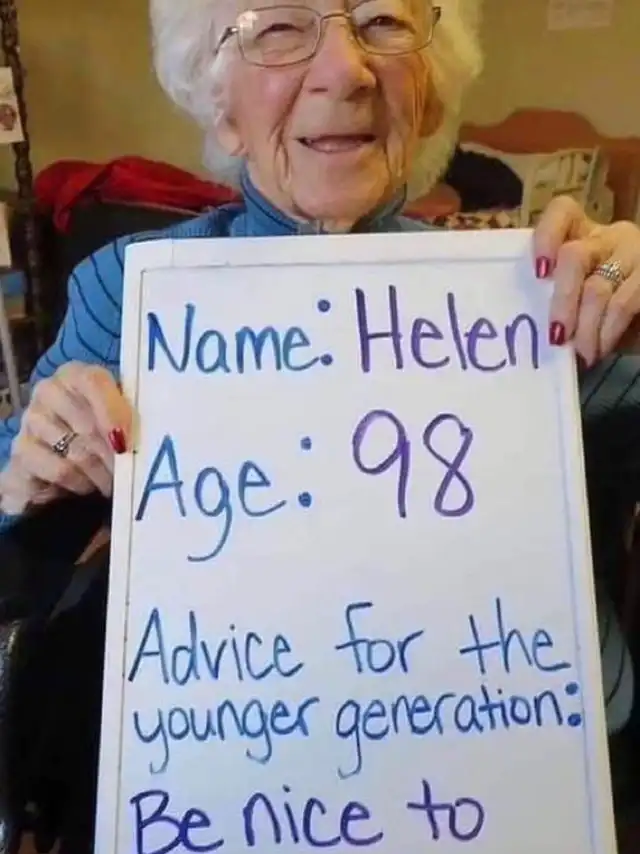 Name: Helen
Age: 98
Advice for the
younger generation:
Be nice to